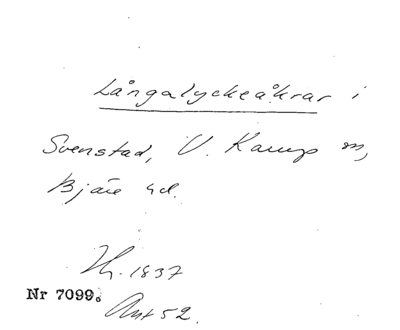 Långalyckeåkrar i
Svenstad, V. Karup sn,
Bjäre hd.
Hh. 1837
Nr 7099.
Ant 52.